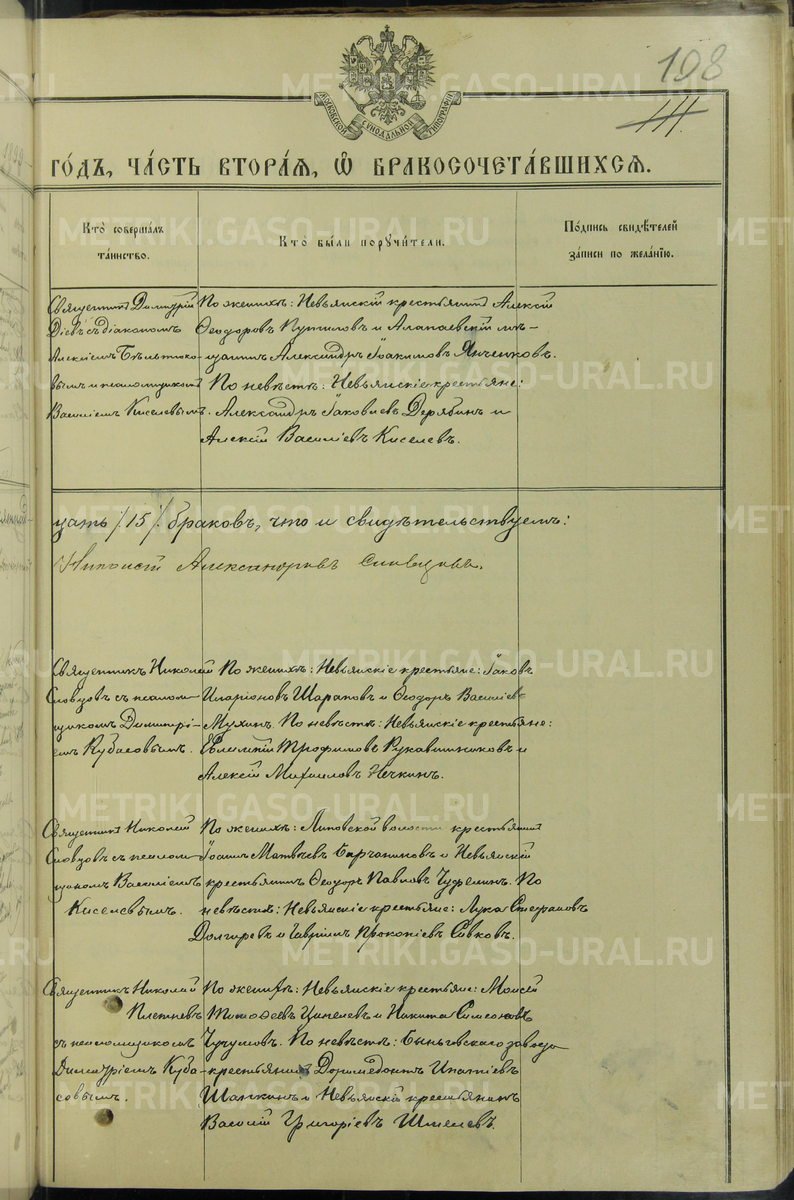 108
111.
МОСКОВСКОЙ СѴНОДАЛЬНОЙ ТИПОГРАФІИ
ГО́ДЪ, ЧА́СТЬ ВТОРА́Я, Ѡ҆ БРАКОСОЧЕТА́ВШИХСЯ.
Кто̀ соверша́лъ
та́инство.
Кто̀ бы́ли поручи́тели.
По́дпись свидѣ́телей
за́писи по жела́нію.
Священникъ Димитрій
Діевъ съ діакономъ
Алексіемъ
вымъ и псаломщикомъ
Василіемъ Киселевымъ.
По женихѣ: Невьянскій крестьянинъ Алексій
Ѳеодоровъ и Алапаевскій мѣ-
щанинъ Александръ Іоакимовъ Янченковъ.
По невѣстѣ: Невьянскіе крестьяне:
Александръ Іаковлевъ Дерябинъ и
Алексій Василіевъ Киселевъ.
цать /15/ браковъ, что и свидѣтельствуемъ:
Александровъ Словцовъ.
Священникъ Николай
Словцовъ съ псалом-
щикомъ Димитрі-
емъ Кубасовымъ.
По женихѣ: Невьянскіе крестьяне: Іаковъ
Иларіоновъ Шараповъ и Ѳеодоръ Василіевъ
Мухинъ. По невѣстѣ: Невьянскіе крестьяне:
Трофимовъ Рукавишниковъ и
Алексій Михаиловъ Нечкинъ.
Священникъ Николай
Словцовъ съ псалом-
щикомъ Василіемъ
Киселевымъ.
По женихѣ: Липовской волости крестьянинъ
Іоаннъ Матвѣевъ и Невьянскій
крестьянинъ Ѳеодоръ Павловъ По
невѣстѣ: Невьянскіе крестьяне: Лука Стефановъ
Долгиревъ и Гавріилъ Прокопіевъ Сивковъ.
Священникъ Николай
Плетневъ
съ псаломщикомъ
Димитріемъ Куба-
совымъ.
По женихѣ: Невьянскіе крестьяне: Моисей
Тимоѳеевъ Ципелевъ и Никита Симеоновъ
Чучумовъ. По невѣстѣ: Быньговскаго завода
крестьянинъ Доримедонтъ Ипатіевъ
Шапкинъ и Невьянскій крестьянинъ
Василій Григоріевъ Шмелевъ.
METRIKI.GASO-URAL.RU